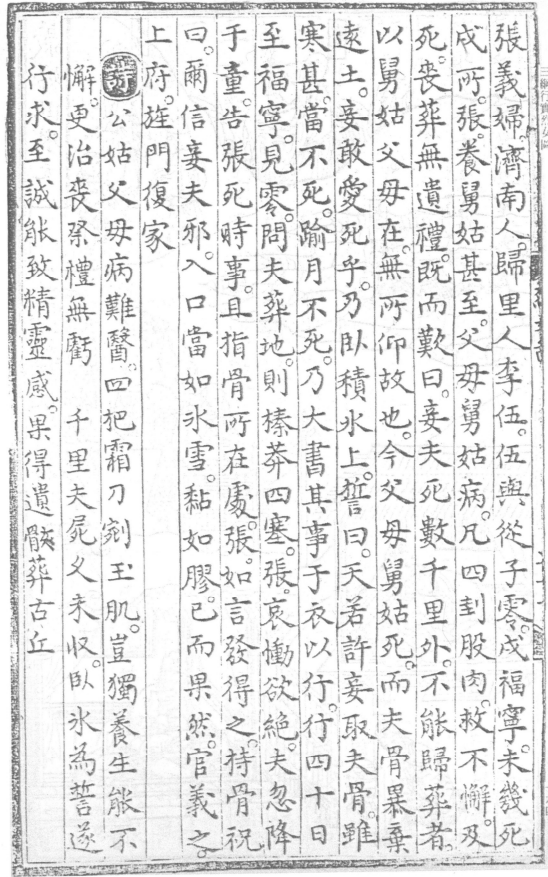 張義婦濟南人。歸里人李伍。伍與從子零。戍福寧。未幾死
戍所。張養舅姑甚至。父母舅姑病。凡四刲股肉。救不懈。及
死。喪葬無遺禮。旣而歎曰。妾夫死數千里外。不能歸葬者。
以舅姑父母在。無所仰故也。今父母舅姑死。而夫骨暴棄
遠土。妾敢愛死乎。乃臥積氷上。誓曰。天若許妾取夫骨。雖
寒甚。當不死。踰月不死。乃大書其事于衣以行。行四十日
至福寧。見零。問夫葬地。則榛莽四塞。張。哀慟欲絶。夫忽降
于童。告張死時事。且指骨所在處。張。如言發得之。持骨祝
曰。爾信妾夫邪。入口當如氷雪。黏如膠。已而果然。官義之。
上府。旌門復家
公姑父母病難醫。四把霜刀剜玉肌。豈獨養生能不
懈。更治喪祭禮無虧 千里夫屍久未収。臥氷為誓遂
行求。至誠能致精靈感。果得遺骸葬古丘